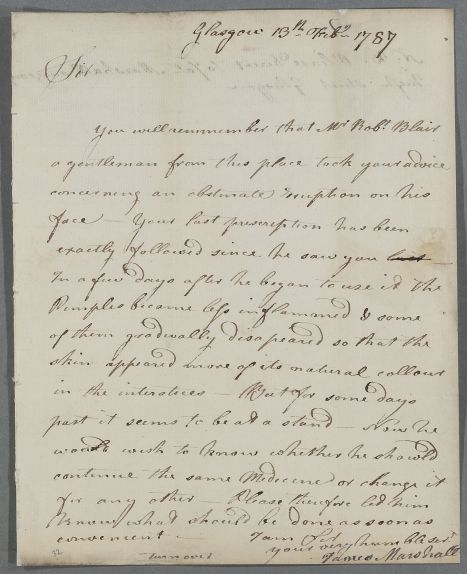 Glasgow 13th Febr 1787
Sir
You will remmember that Mr Robt. Blair
a gentleman from this place took your advice
concerning an obstinate Eruption on his
face — Your last prescription has been
exactly followed since he saw you last
In a few days after he began to use it the
Pimples became less inflammed & some
of them gradwally disapeared so that the
skin appeared more of its natural collour
in the interstices — But for some days
past it seems to be at a stand — Now he
would wish to know whether he should
continue the same Medecine or change it
for any other — Please therefore let him
know what should be done as soon as
convenient — I am Sir
your very humble servt
James Marshall
turn over
32